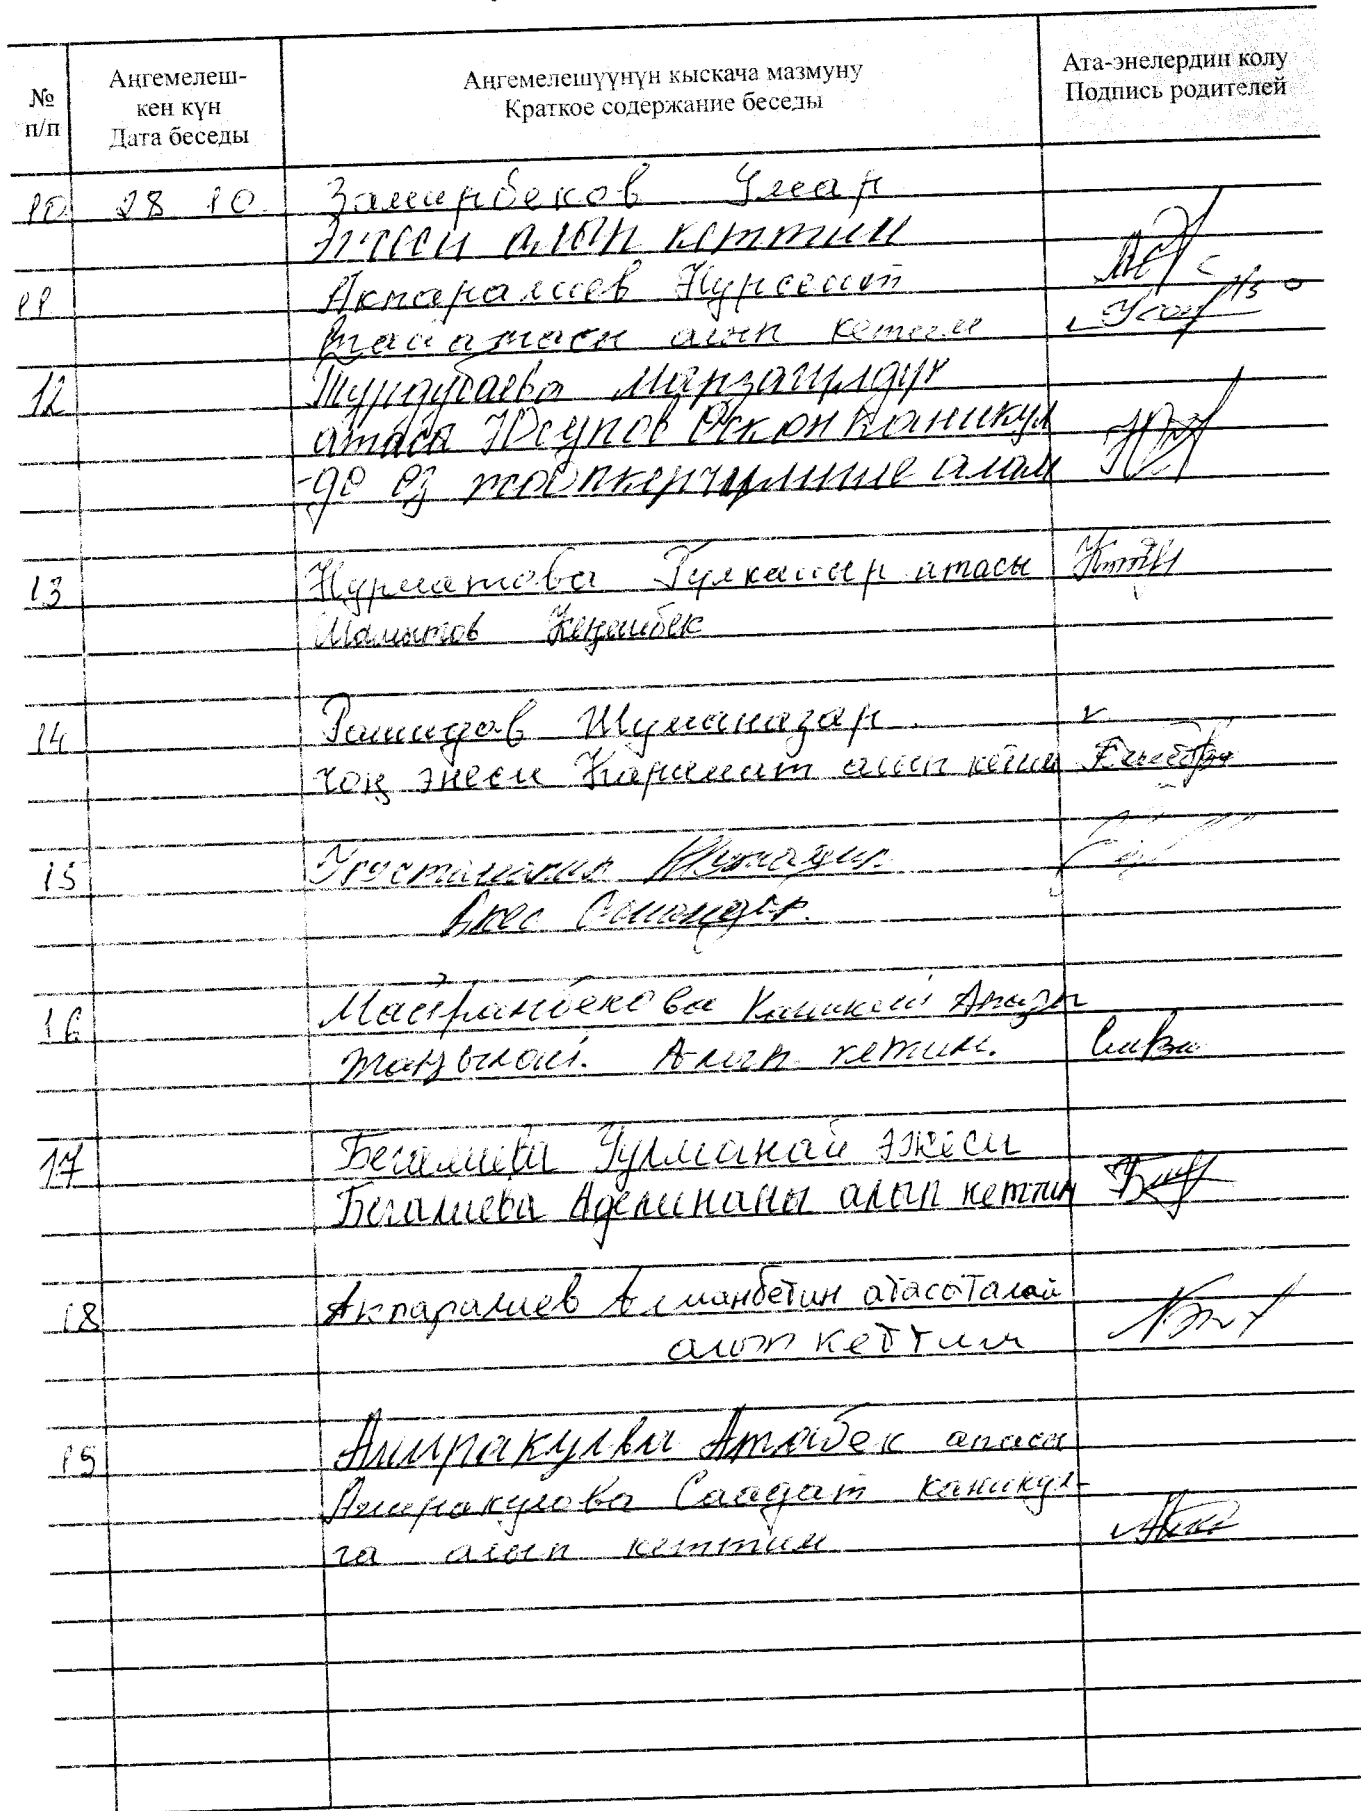 № п/п
Аңгемелеш-
кен күн
Дата беседы
Аңгемелешүүнүн кыскача мазмуну
Краткое содержание беседы
Ата-энелердин колу
Подпись родителей
10 28 10. Замирбеков Умар
Эжеси алып кеттим
11 Акпаралиев Нурсеит
Тай атасы алып кетим
12 Турдубаева Мирзагулдун
атасы Юсупов Өскөн каникул
-дө өз жоопкерчилигиме алам
13 Нурматова Гулкайыр атасы
Шамытов Кеңешбек
14 Рашидов Шуманазар.
чоң энеси Каримат алып кетим
15
16 Майрамбекова Каныкей Апасы
Таңылай. Алып кетим.
17 Бегалиева Гулманай эжеси
Бегалиева Аделинаны алып кеттим
18 Акпаралиев Алманбетин атасы Талай
алып кеттим
19 Амиракулов Атабек апасы
Амиракулова Саадат каникул-
га алып кеттим